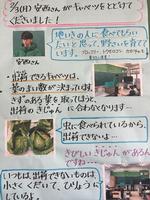 3/5(月)宮西さんが、キャベツをとどけて
くださいました!
地いきの人に食べてもら
いたいと思って、野さいを育てて
います。
ブロッコリー トウモロコシ
宮西さん
・出荷できるキャベツは、
葉のまい数が決まっています。
きずのある葉を取ってしまうと、
出荷のきじゅんに合わなくなります…
虫に食べられているから、
出荷できないよ…
きびしいきじゅんがあるん
ですね…
いつも、出荷できないものは、
小さくくだいて、ひりょうに
しているよ。